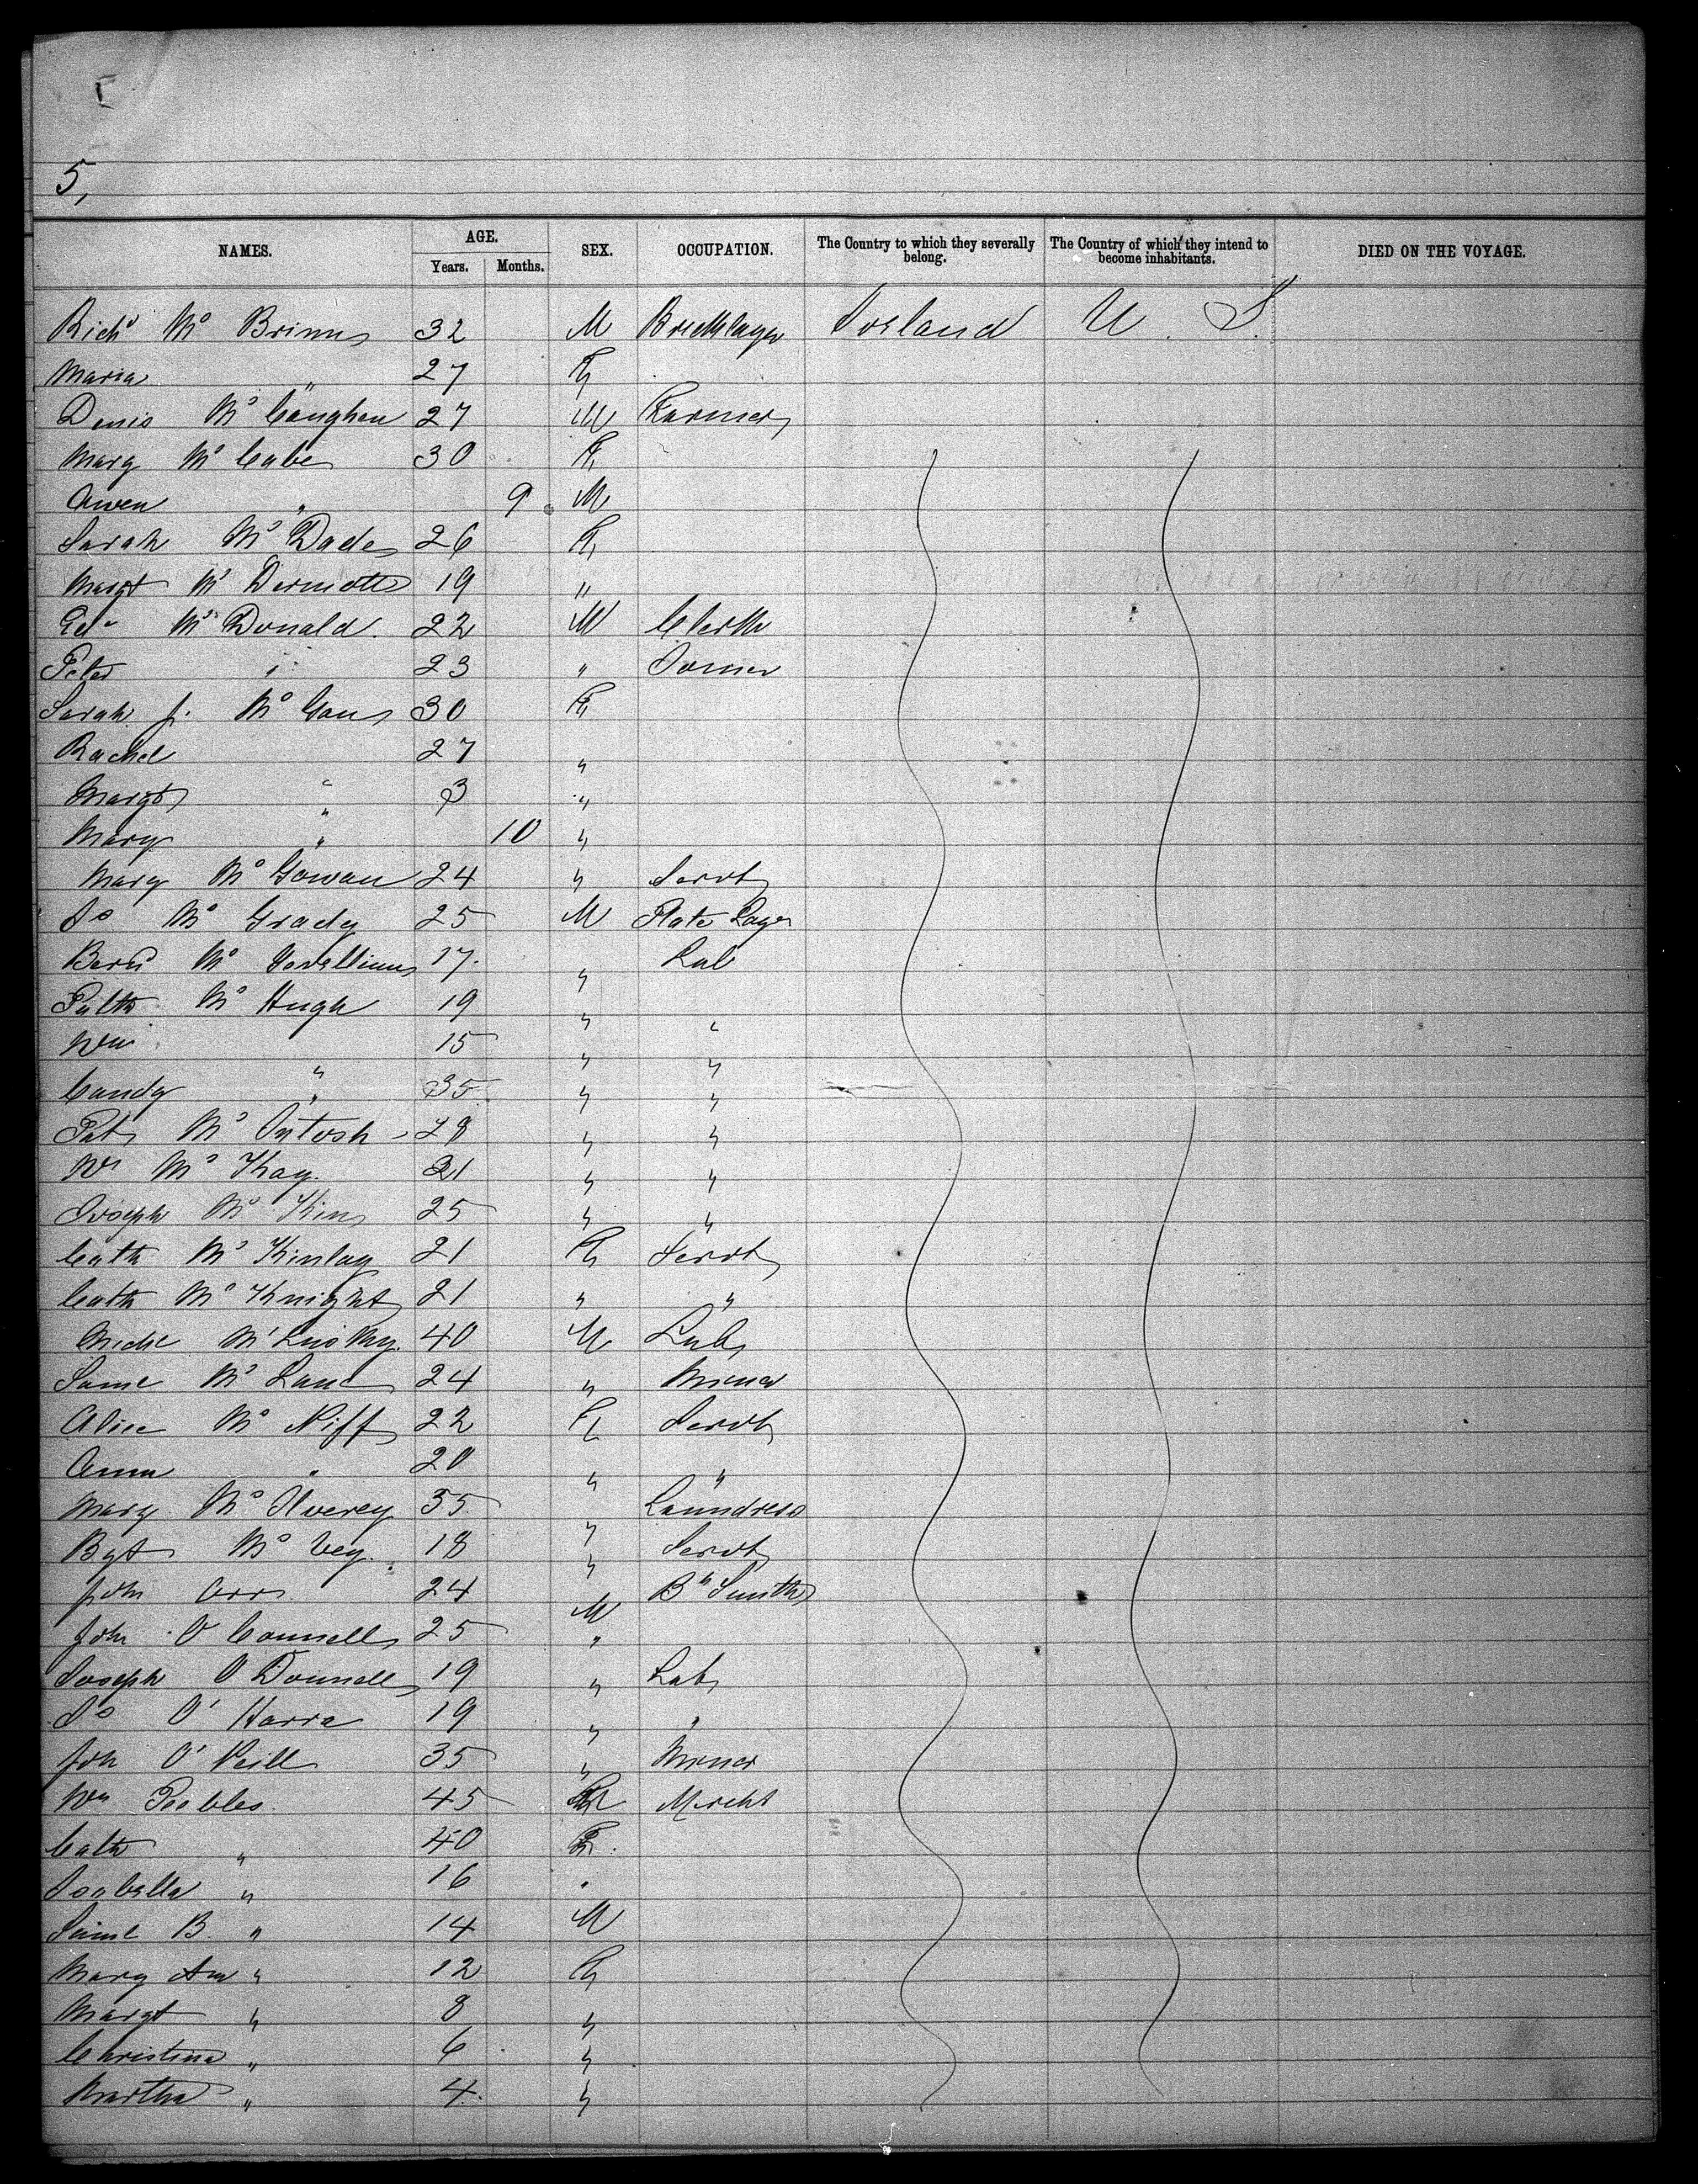 5,
NAMES. AGE. SEX. OCCUPATION. The Country to which they severally belong. The Country of which they intend to become inhabitants. DIED ON THE VOYAGE.
Years. Months.
Richd Mc 32 M Bricklayer Ireland U. S.
Maria " 27 F
Denis Mc Caughen 27 M Farmer
Mary Mc Cabe 30 F
Owen " 9 M
Sarah Mc Dade 26 F
Margt Mc Dermott 19 "
Mc Donald 22 M Clerk
Peter " 23 "
Sarah J. Mc 30 F
Rachel 27 "
Margt " 3 "
Mary " 10 "
Mary Mc Gowan 24 " Servt
Js Mc Grady 25 M Plate Layer
Mc 17 " Lab
Patk Mc Hugh 19 " "
Wm " 15 " "
Condy " 35 " "
Pat Mc Intosh 28 " "
Wm Mc Kay 21 " "
Joseph Mc 25 " "
Cath Mc Kinlay 21 F Servt
Cath Mc Knight 21 " "
Michl Mc 40 M Lab
Saml Mc Lane 24 " Miner
Alice Mc Niff 22 F Servt
Anna " 20 " "
Mary Mc Ilverey 35 " Laundress
Bgt Mc Vey 18 " Servt
John Orr 24 M B" Smith
John O Connell 25 "
Joseph O Donnell 19 " Lab
Js O' Harra 19 " "
Jon O' Neill 35 " Miner
Wm Peebles 45 M Mercht
Cath " 40 F
Isabella " 16 "
Saml B. " 14 M
Mary Ann " 12 F
Margt " 8 "
Christina " 6 "
Martha " 4 "